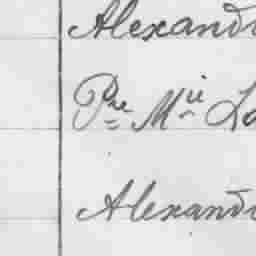 Alexand
Pre Mii La
Alexand